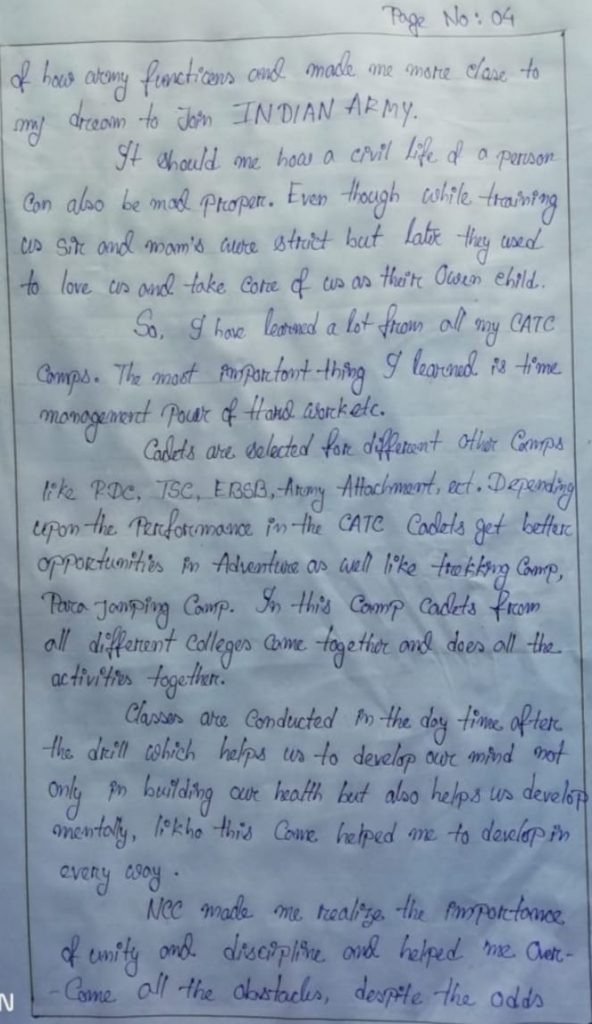 Page No: 04
of how army functions and made me more close to
my dream to Join INDIAN ARMY.
It should me how a civil life of a person
Can also be mad proper. Even though while training
us sir and mam's were strict but later they used
to love us and take care of us as their Owen child.
So, I have learned a lot from all my CATC
Camps. The most important thing I learned is time
management power of Hard work etc.
Cadets are selected for different other Camps
like RDC, TSC, EBSB, Army Attachment, ect. Depending
upon the Performance in the CATC Cadets get better
opportunities in Adventure as well like trekking Camp,
Para Jamping Camp. In this Camp Cadets from
all different Colleges Came together and does all the
activities together.
Classes are Conducted in the day time after
the drill which helps us to develop our mind not
only in building our health but also helps us develop
mentally, this Came helped me to develop in
every way.
NCC made me realize the importance
of unity and discipline and helped me Over-
-Come all the obstacles, despite the odds
N